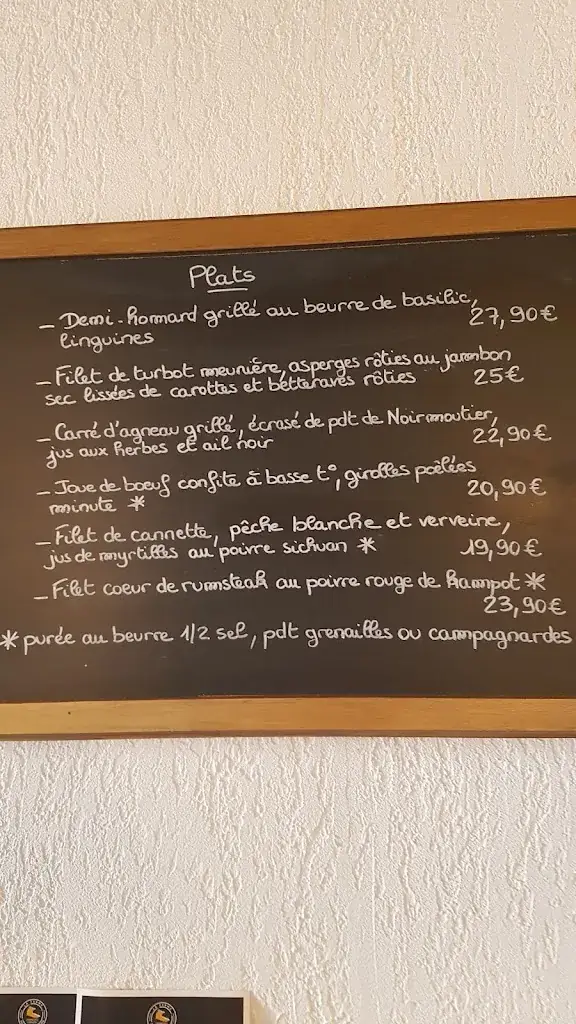 Plats
- Demi-homard grillé au beurre de basilic,
linguines 27,90€
- Filet de turbot meunière, asperges rôties au jambon
sec lissées de carottes et betteraves rôties 25€
- Carré d'agneau grillé, écrasé de pdt de Noirmoutier,
jus aux herbes et ail noir 22,90€
- Joue de boeuf confite à basse t°, girolles poêlées
minute * 20,90€
- Filet de cannette, pêche blanche et verveine,
jus de myrtilles au poivre sichuan * 19,90€
- Filet coeur de rumsteak au poivre rouge de Kampot *
23,90€
* purée au beurre 1/2 sel, pdt grenailles ou campagnardes